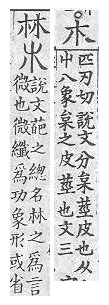 朩
匹刃切說文分枲莖皮也从
屮八象枲之皮莖也文三
𣏟朩
說文葩之總名𣏟之爲言
微也微纖爲功象形或省